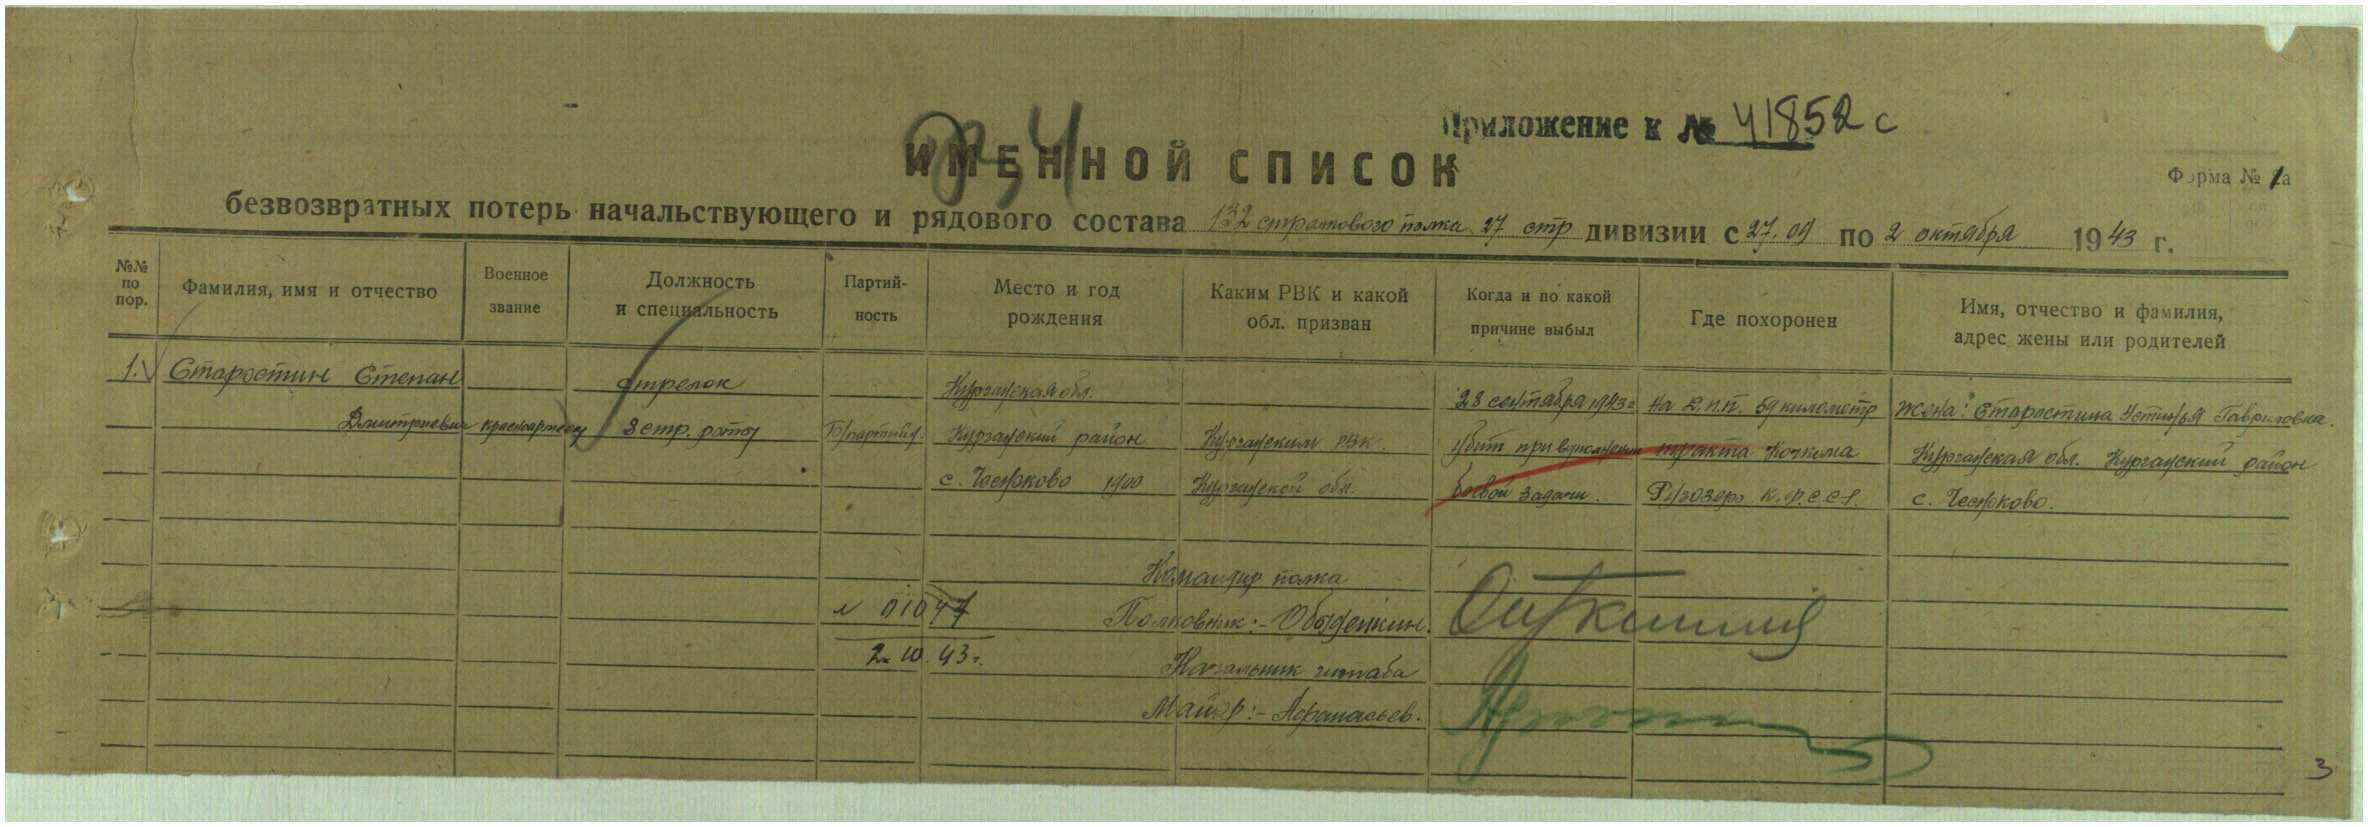 Приложение к № 41852 с
ИМЕННОЙ СПИСОК
Форма № 1а
безвозвратных потерь начальствующего и рядового состава 132 стрелкового полка 27 стр дивизии с 27.09 по 2 октября 1943 г.
№№ по пор.
Фамилия, имя и отчество
Военное звание
Должность и специальность
Партий-ность
Место и год рождения
Каким РВК и какой обл. призван
Когда и по какой причине выбыл
Где похоронен
Имя, отчество и фамилия, адрес жены или родителей
1. Старостин Степан стрелок Курганская обл. 28 сентября 1943г на с.п.п. 59 километр Жена: Старостина Устинья Гавриловна.
Дмитриевич красноармеец 3 стр. роты Б/партийн. Курганский район Курганским РВК. убит при выполнении тракта Кочкома Курганская обл. Курганский район
с. Чесноково 1900 Курганской обл. боевой задачи. Ругозеро К.Ф.С.С.Р. с. Чесноково.
Командир полка
№ 01047 Полковник:-
2.10.43г. Начальник штаба
Майор:- Афанасьев.
3